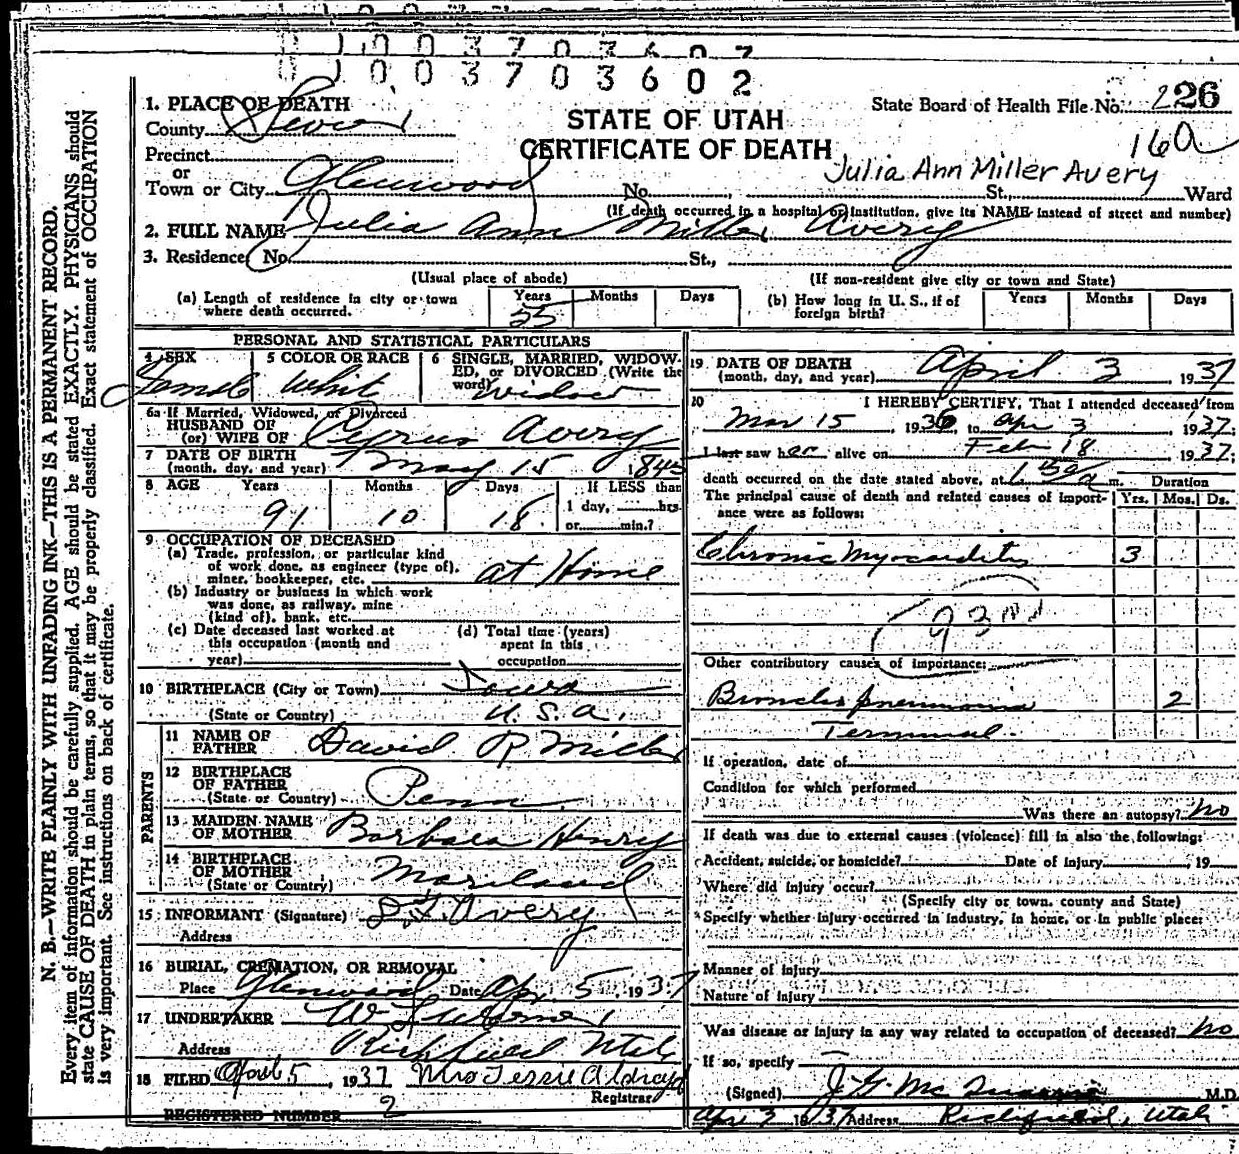 0 1 0 0 3 7 0 3 6 0 2
State Board of Health File No. 226
16a
STATE OF UTAH
CERTIFICATE OF DEATH
Julia Ann Miller Avery
1. PLACE OF DEATH
County Sevier
Precinct
or
Town or City Glenwood No. St., Ward
(If death occurred in a hospital or institution, give its NAME instead of street and number)
2. FULL NAME Julia Ann Miller Avery
3. Residence No. St.,
(Usual place of abode) (If non-resident give city or town and State)
(a) Length of residence in city or town where death occurred. Years 55 Months Days
(b) How long in U. S., if of foreign birth? Years Months Days
PERSONAL AND STATISTICAL PARTICULARS
4 SEX Female
5 COLOR OR RACE White
6 SINGLE, MARRIED, WIDOWED, or DIVORCED (Write the word) Widow
6a If Married, Widowed, or Divorced
HUSBAND OF
(or) WIFE OF Cyrus Avery
7 DATE OF BIRTH
(month, day, and year) May 15 1845
8 AGE Years 91 Months 10 Days 18 If LESS than 1 day, hrs. or min.?
9 OCCUPATION OF DECEASED
(a) Trade, profession, or particular kind
of work done, as engineer (type of),
miner, bookkeeper, etc. at Home
(b) Industry or business in which work
was done, as railway, mine
(kind of), bank, etc.
(c) Date deceased last worked at
this occupation (month and
year)
(d) Total time (years)
spent in this
occupation
10 BIRTHPLACE (City or Town) Iowa
(State or Country) U.S.A.
PARENTS
11 NAME OF FATHER David R Miller
12 BIRTHPLACE OF FATHER
(State or Country) Penn.
13 MAIDEN NAME OF MOTHER Barbara Henry
14 BIRTHPLACE OF MOTHER
(State or Country) Mariland
15 INFORMANT (Signature) Avery
Address
16 BURIAL, CREMATION, OR REMOVAL
Place Glenwood Date Apr. 5, 1937
17 UNDERTAKER
Address Richfield Utah
18 FILED April 5, 1937 Mrs
Registrar
REGISTERED NUMBER 2
19 DATE OF DEATH
(month, day, and year) April 3 1937
20 I HEREBY CERTIFY, That I attended deceased from
Mar 15, 1936, to Apr 3 1937;
I last saw her alive on Feb 18 1937;
death occurred on the date stated above, at m. Duration
The principal cause of death and related causes of importance were as follows: Yrs. Mos. Ds.
Chronic Myocarditis 3
93
Other contributory causes of importance:
Broncho pneumonia 2
Terminal.
If operation, date of
Condition for which performed
Was there an autopsy? no
If death was due to external causes (violence) fill in also the following:
Accident, suicide, or homicide? Date of injury , 19
Where did injury occur?
(Specify city or town, county and State)
Specify whether injury occurred in industry, in home, or in public place:
Manner of injury
Nature of injury
Was disease or injury in any way related to occupation of deceased? no
If so, specify
(Signed) M.D.
Apr 3 1937 Address Richfield, Utah
N. B.—WRITE PLAINLY WITH UNFADING INK—THIS IS A PERMANENT RECORD.
Every item of information should be carefully supplied. AGE should be stated EXACTLY. PHYSICIANS should
state CAUSE OF DEATH in plain terms, so that it may be properly classified. Exact statement of OCCUPATION
is very important. See instructions on back of certificate.